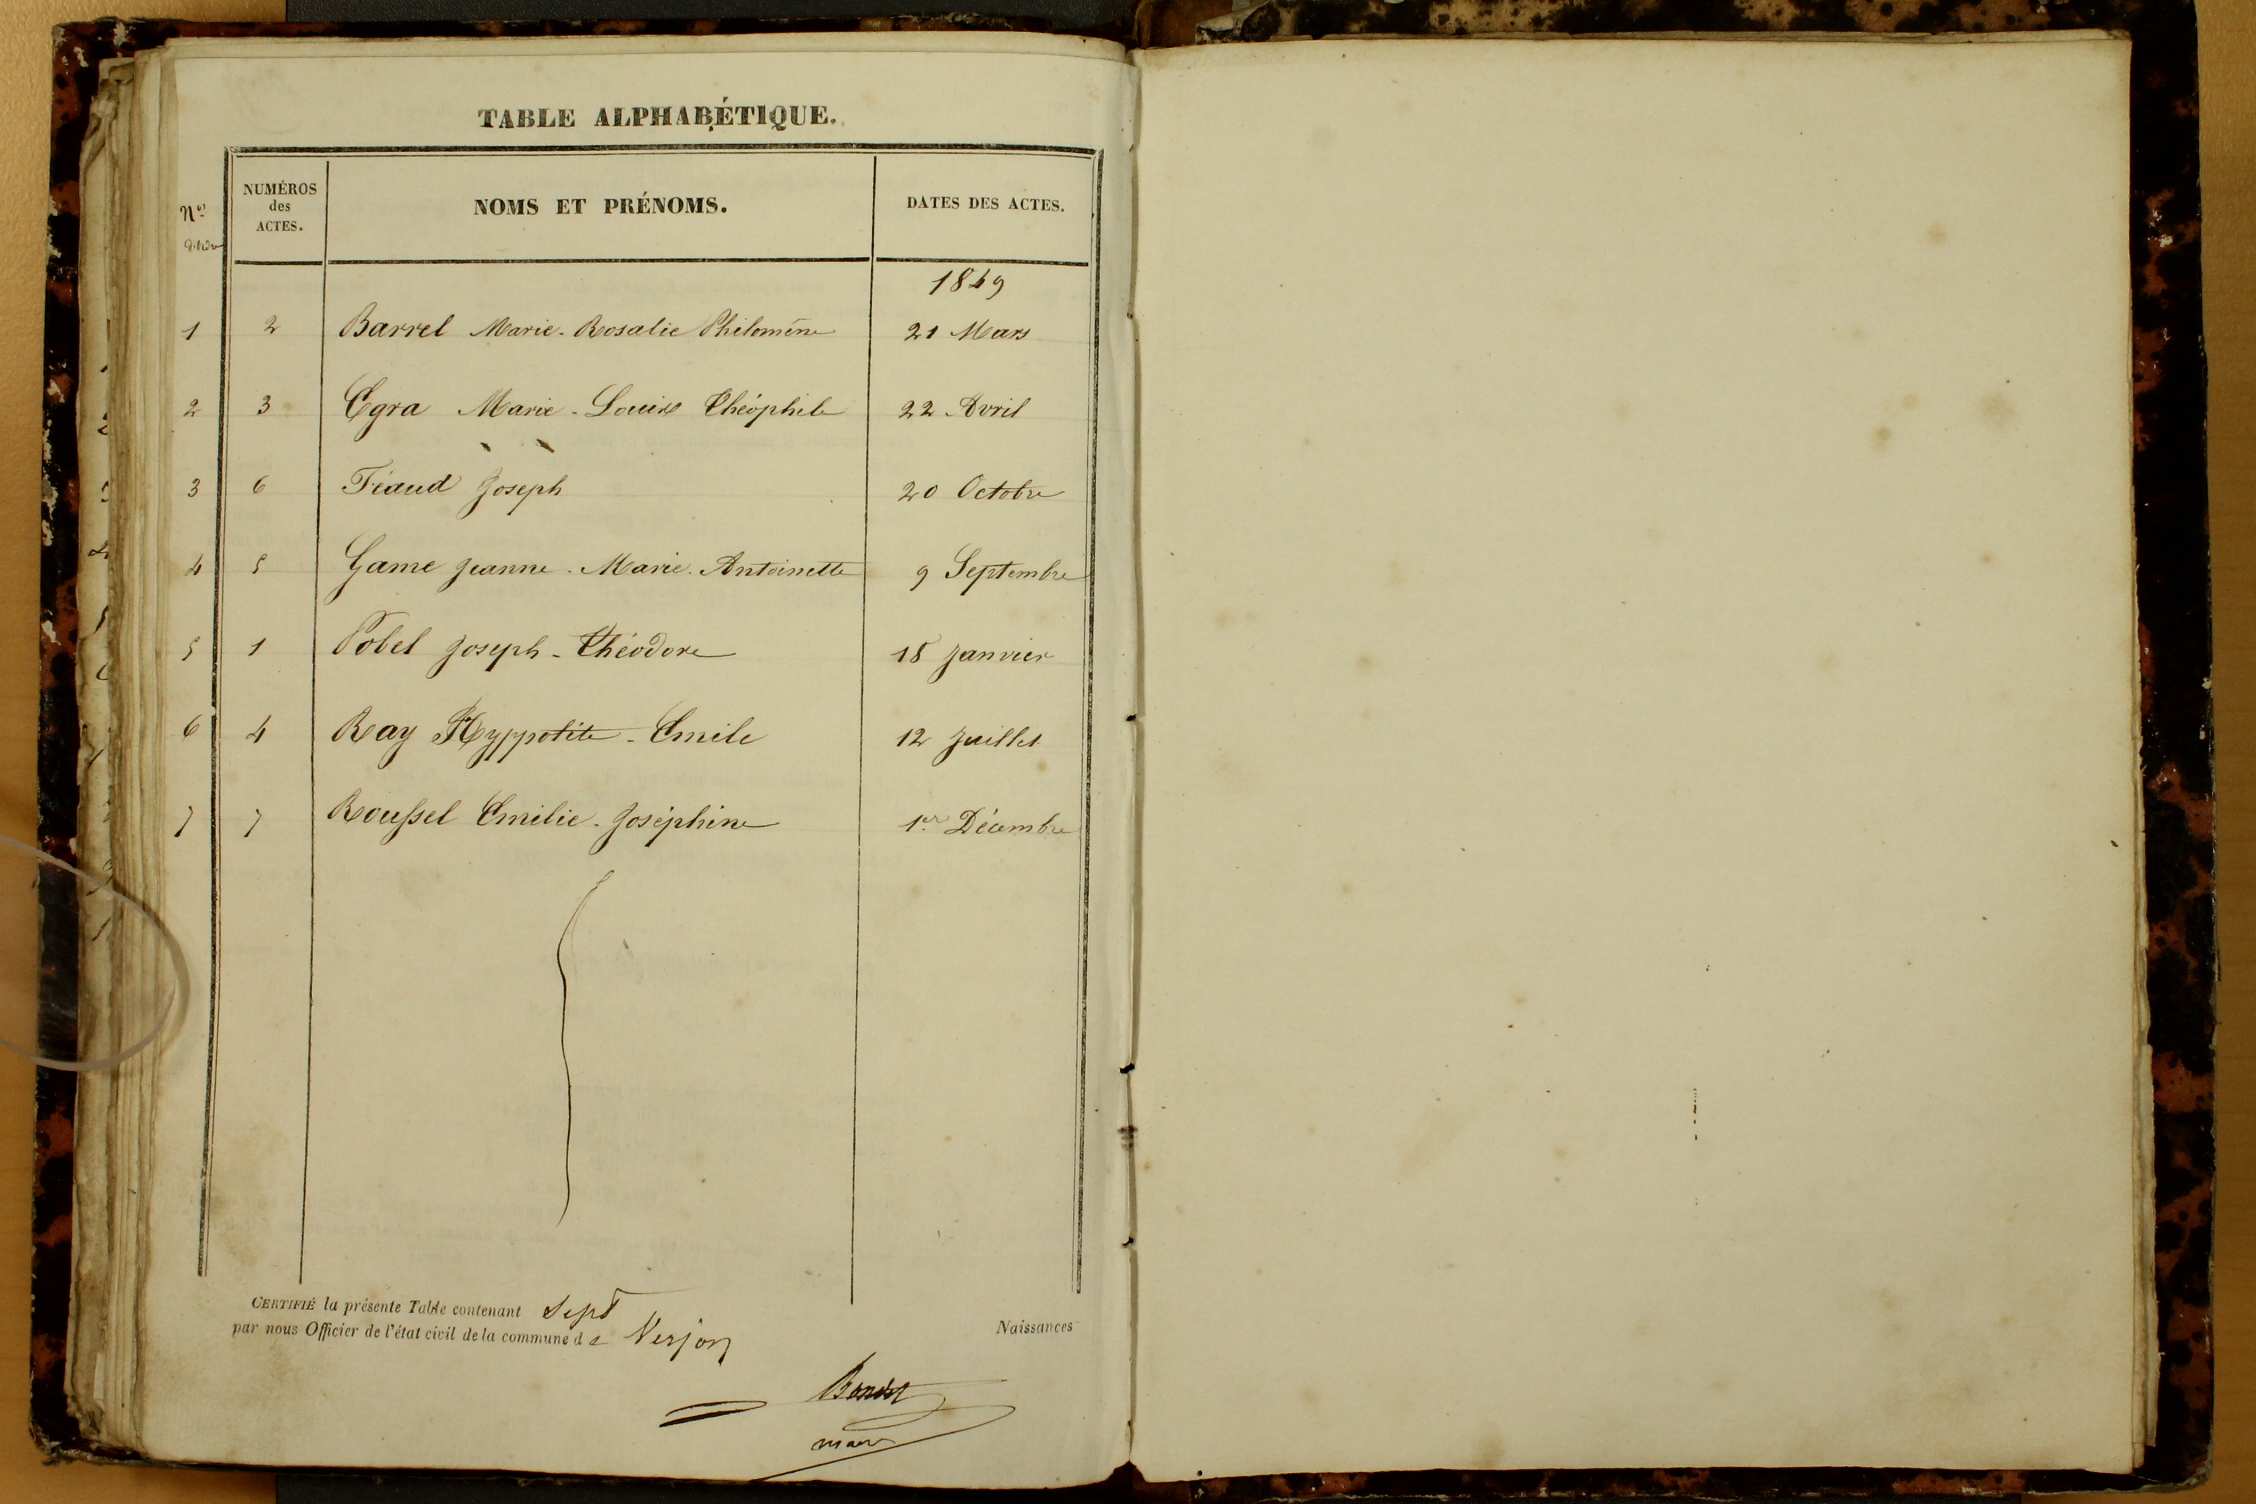 TABLE ALPHABÉTIQUE.
Nos
NUMÉROS des ACTES.
NOMS ET PRÉNOMS.
DATES DES ACTES.
1849
1 2 Barrel Marie-Rosalie Philomène 21 Mars
2 3 Egra Marie-Louise Théophile 22 Avril
3 6 Féaud Joseph 20 Octobre
4 5 Game Jeanne-Marie-Antoinette 9 Septembre
5 1 Pobel Joseph-Théodore 15 Janvier
6 4 Ray Hyppolite-Emile 12 Juillet
7 7 Roussel Emilie-Joséphine 1er Décembre
CERTIFIÉ la présente Table contenant Sept Naissances
par nous Officier de l'état civil de la commune de Verjon
maire